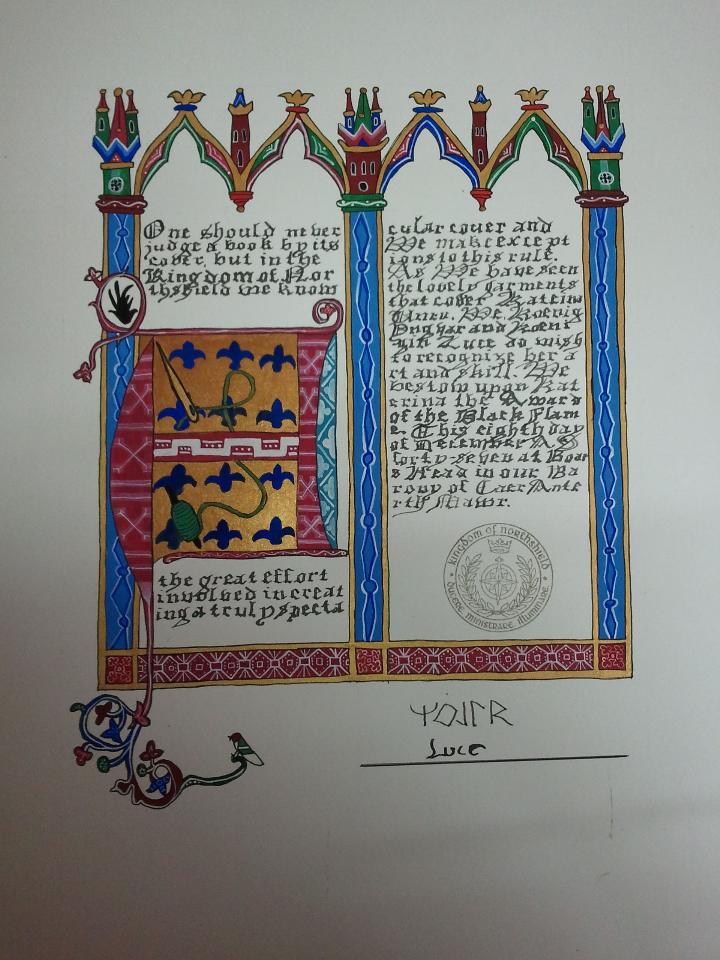 One should never
judge a book by its
cover, but in the
Kingdom of Nor
thshield we know
the great effort
involved in creat
ing a truly specta
cular cover and
We make except
ions to this rule.
As We have seen
the lovely garments
that cover Katerin
We, Koenig
Yngvar and Koeni
gin Luce do wish
to recognize her a
rt and skill. We
bestow upon Kat
erina the Award
of the Black Flam
e. This eighth day
of December A.S
forty-seven at Boar
s Head in our Ba
rony of Caer Ante
rth Mawr.
Kingdom of Northshield
Ducere Ministrare Illuminare
Luce